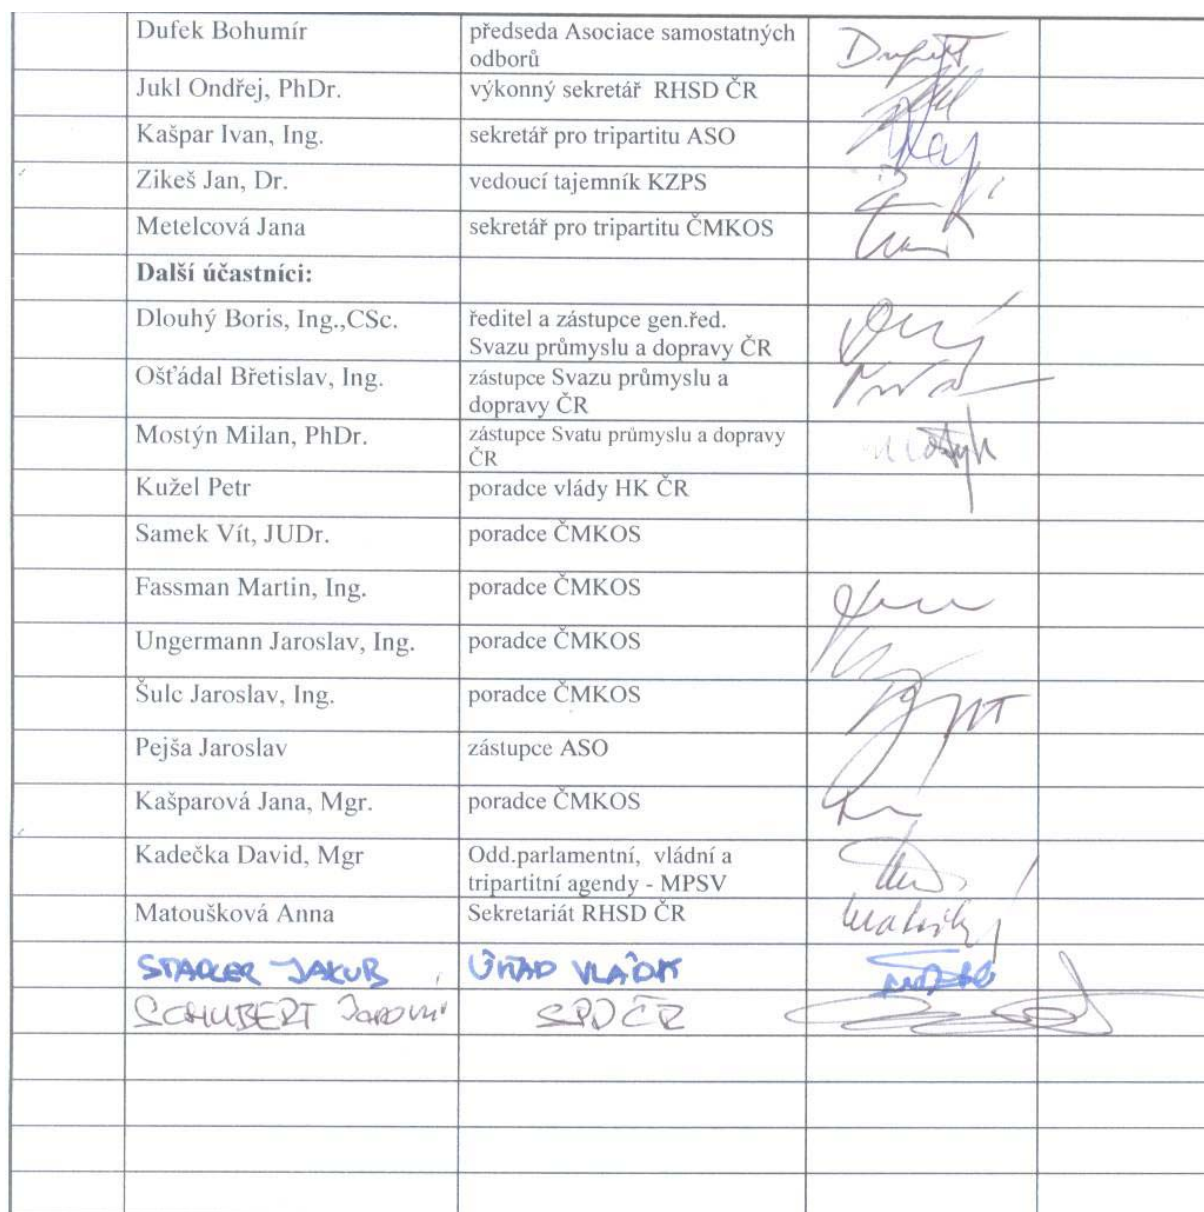 Dufek Bohumír předseda Asociace samostatných
odborů
Jukl Ondřej, PhDr. výkonný sekretář RHSD ČR
Kašpar Ivan, Ing. sekretář pro tripartitu ASO
Zikeš Jan, Dr. vedoucí tajemník KZPS
Metelcová Jana sekretář pro tripartitu ČMKOS
Další účastníci:
Dlouhý Boris, Ing.,CSc. ředitel a zástupce gen.řed.
Svazu průmyslu a dopravy ČR
Ošťádal Břetislav, Ing. zástupce Svazu průmyslu a
dopravy ČR
Mostýn Milan, PhDr. zástupce Svatu průmyslu a dopravy
ČR
Kužel Petr poradce vlády HK ČR
Samek Vít, JUDr. poradce ČMKOS
Fassman Martin, Ing. poradce ČMKOS
Ungermann Jaroslav, Ing. poradce ČMKOS
Šulc Jaroslav, Ing. poradce ČMKOS
Pejša Jaroslav zástupce ASO
Kašparová Jana, Mgr. poradce ČMKOS
Kadečka David, Mgr Odd.parlamentní, vládní a
tripartitní agendy - MPSV
Matoušková Anna Sekretariát RHSD ČR
STADLER JAKUB ÚŘAD VLÁDY
SCHUBERT SPD ČR